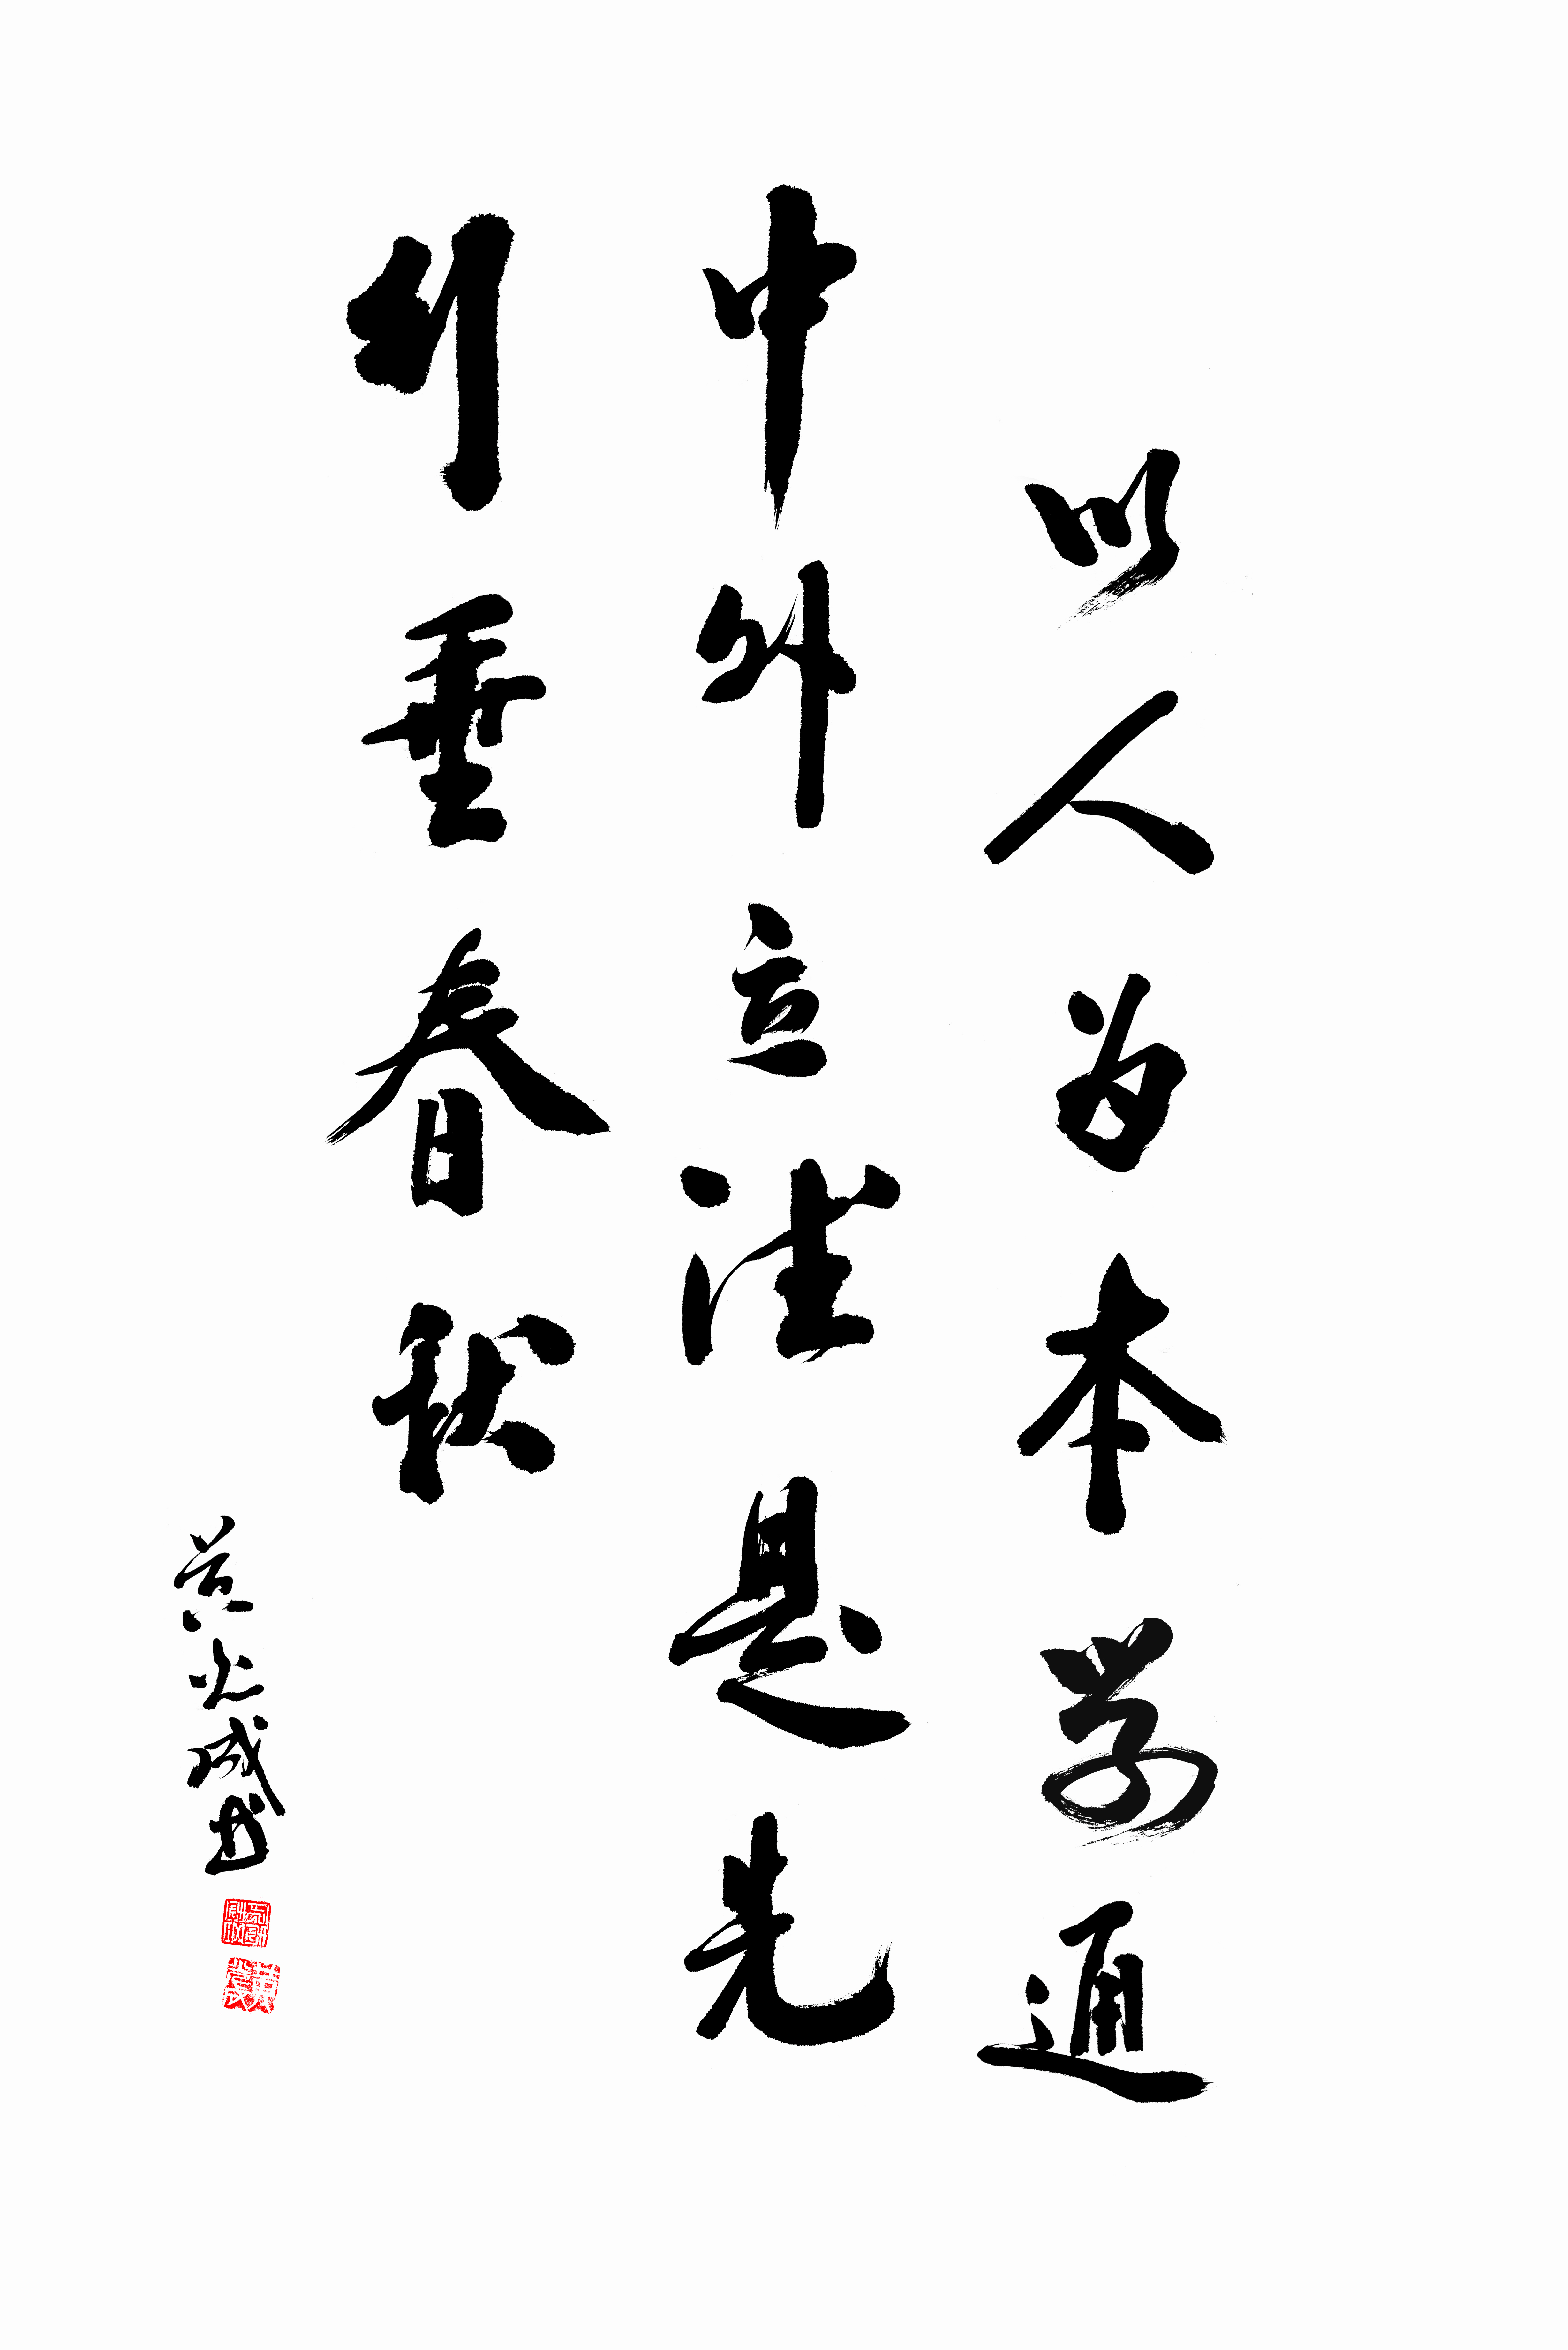 以人为本学通
中外立法是先
引垂春秋
黄火成书